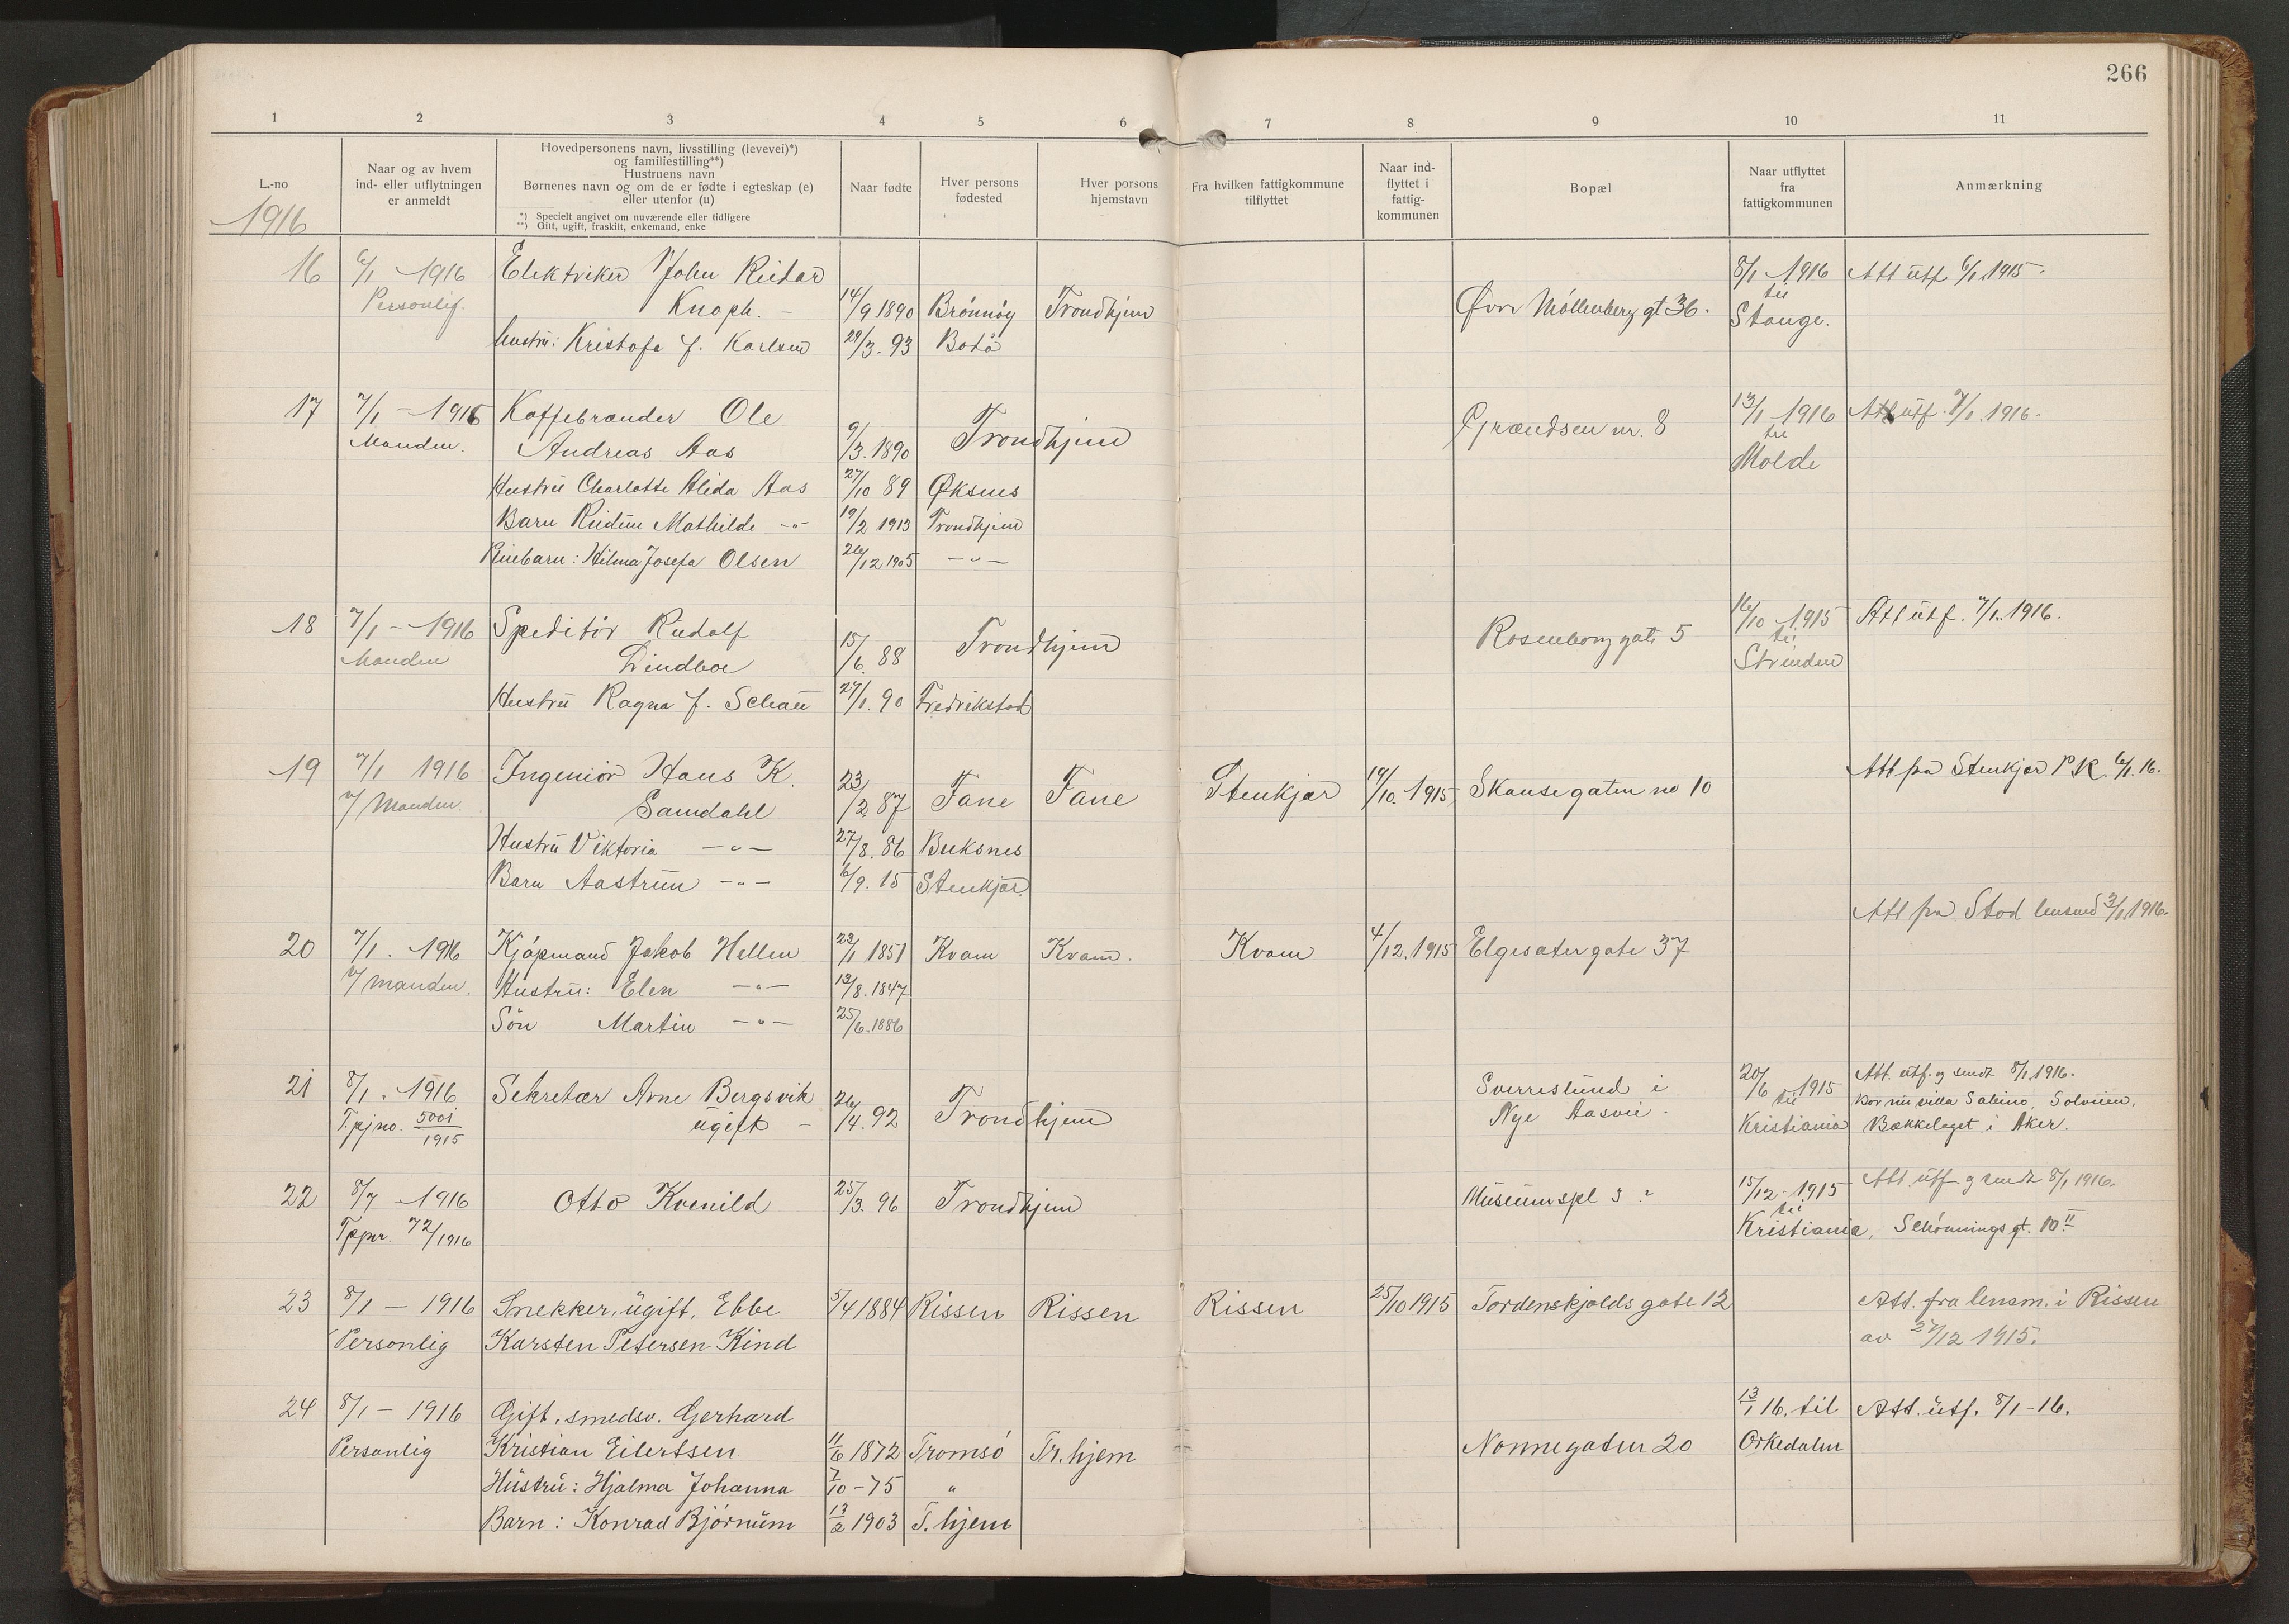 266
1 2 3 4 5 6 7 8 9 10 11
L.-no
1916
Naar og av hvem
ind- eller utflytningen
er anmeldt
Hovedpersonens navn, livsstilling (levevei)*)
og familiestilling**)
Hustruens navn
Børnenes navn og om de er fødte i egteskap (e)
eller utenfor (u)
*) Specielt angivet om nuværende eller tidligere
**) Gift, ugift, fraskilt, enkemand, enke
Naar fødte
Hver persons
fødested
Hver porsons
hjemstavn
Fra hvilken fattigkommune
tilflyttet
Naar ind-
flyttet i
fattig-
kommunen
Bopæl
Naar utflyttet
fra
fattigkommunen
Anmærkning
16 6/1 1916 Elektriker John Reidar 8/1 1916 Att utf 6/1 1915.
Personlig. Knoph. 14/9 1890 Brönnöy Trondhjem Øvre Möllenberg gt 36. til
Stange.
hustru: Kristofa f. Karlsen 29/3. 93 Bodö
17 7/1 - 1916 Kaffebrænder Ole Grændsen nr. 8 13/1 1916 Att utf. 7/1. 1916.
Manden. Andreas Aas 9/3. 1890 Trondhjem til
Molde
Hustru Charlotte Alida Aas 27/10 89 Øksnes
Barn Mathilde -"- 19/2 1913 Trondhjem
Pleiebarn: Hilma Josefa Olsen 26/12 1905 -"-
18 7/1 - 1916 Speditör Rudolf 16/10 1915 Att utf. 7/1. 1916.
Manden Lindboe 15/6. 88 Trondhjem Rosenborg gate 5 til
Strinden
Hustru Ragna f. Schau 27/1. 90 Fredrikstad
19 7/1 1916 Ingeniör Hans K. Att fra Stenkjær P.K. 6/1. 16.
v/ Manden. Samdahl 23/2 87 Fane Fane Stenkjær 19/10. 1915 Skansegaten no 10
Hustru Viktoria -"- 27/8. 86 Buksnes
Barn Aastrun -"- 6/9. 15 Stenkjær
Att fra Stod lensmd 3/1 1916.
20 7/1. 1916 Kjöpmand Jakob Hellem 23/1 1851 Kvam Kvam. Kvam 4/12. 1915 Elgesætergate 37
v/ manden. Hustru: Elen -"- 13/8. 1847
Sön Martin -"- 25/6. 1886
21 8/1. 1916 Sekretær Arne Bergsvik 26/4. 92 Trondhjem Sverreslund i 20/6 1915 Att. utf. og sendt 8/1 1916.
T.pj no. 5001/1915 ugift - Nye Aasvei. til
Kristiania
Bor nu villa Sabino, Solveien,
Bækkelaget i Aker.
22 8/7 1916 Otto Kvenild 25/3. 96 Trondhjem Museumspl 3 ? 15/12. 1915 Att. utf og sendt 8/1 1916.
Tppr. 72/1916 til
Kristiania, Schönnings gt. 10 II
23 8/1 - 1916 Snekker, ugift, Ebbe 5/4 1884 Rissen Rissen Rissen 25/10 1915 Tordenskjolds gate 12 Att. fra lensm. i Rissen
Personlig Karsten Petersen Kind av 27/12 1915.
24 8/1 - 1916 Gift, smedsv. Gerhard 13/1 16. til Att. utf. 8/1 - 16.
Personlig Kristian Eilertsen 11/6 1872 Tromsö Tr.hjem Nonnegaten 20 Orkedalen
Hustru: Hjalma Johanna 7/10 - 75 "
Barn: Konrad Björnum 13/2 1903 T.hjem